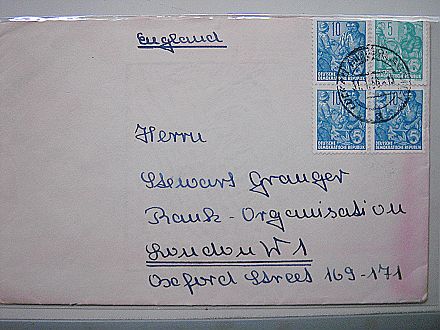 England
10
5
DEUTSCHE
DEMOKRATISCHE REPUBLIK
10
DEUTSCHE
DEMOKRATISCHE REPUBLIK
DEUTSCHE
DEMOKRATISCHE REPUBLIK
Herrn
Stewart Granger
Rank-Organisation
London W1
Oxford Street 169-171